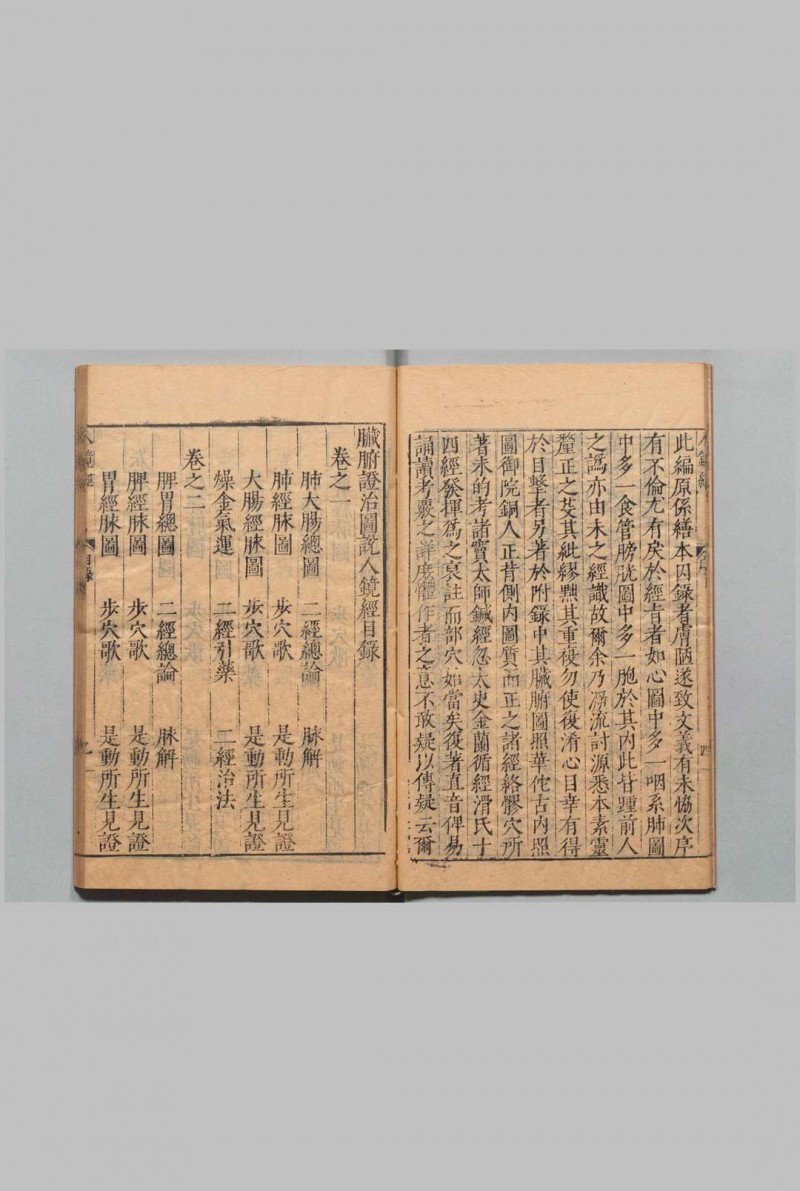 此編原係繕本因錄者膚陋遂致文義有未恊次序
有不倫尤有戾於經旨者如心圖中多一咽系肺圖
中多一食管膀胱圖中多一胞於其內此皆踵前人
之譌亦由未之經識故爾余乃溯流討源悉本素靈
釐正之芟其紕繆㸃其重複勿使復淆心目幸有得
於目擊者另著於附錄中其臟腑圖照華佗古內照
圖御院銅人正背側內圖質而正之諸經絡髎穴所
著未的考諸竇太師鍼經忽太史金蘭循經滑氏十
四經發揮爲之裒註而部穴始當矣復著直音俾易
誦讀考覈之詳庶體作者之意不敢疑以傳疑云爾
臟腑證治圖說人鏡經目錄
卷之一
肺大腸總圖 二經總論 脉解
肺經脉圖 步穴歌 是動所生見證
大腸經脉圖 步穴歌 是動所生見證
燥金氣運 二經引藥 二經治法
卷之二
脾胃總圖 二經總論 脉解
脾經脉圖 步穴歌 是動所生見證
胃經脉圖 步穴歌 是動所生見證
人鏡經 目錄